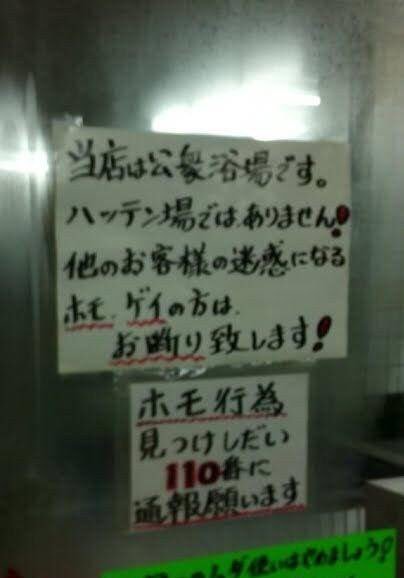 当店は公衆浴場です。
ハッテン場ではありません!
他のお客様の迷惑になる
ホモ、ゲイの方は、
お断り致します!
ホモ行為
見つけしだい
110番に
通報願います
使いはやめましょう!